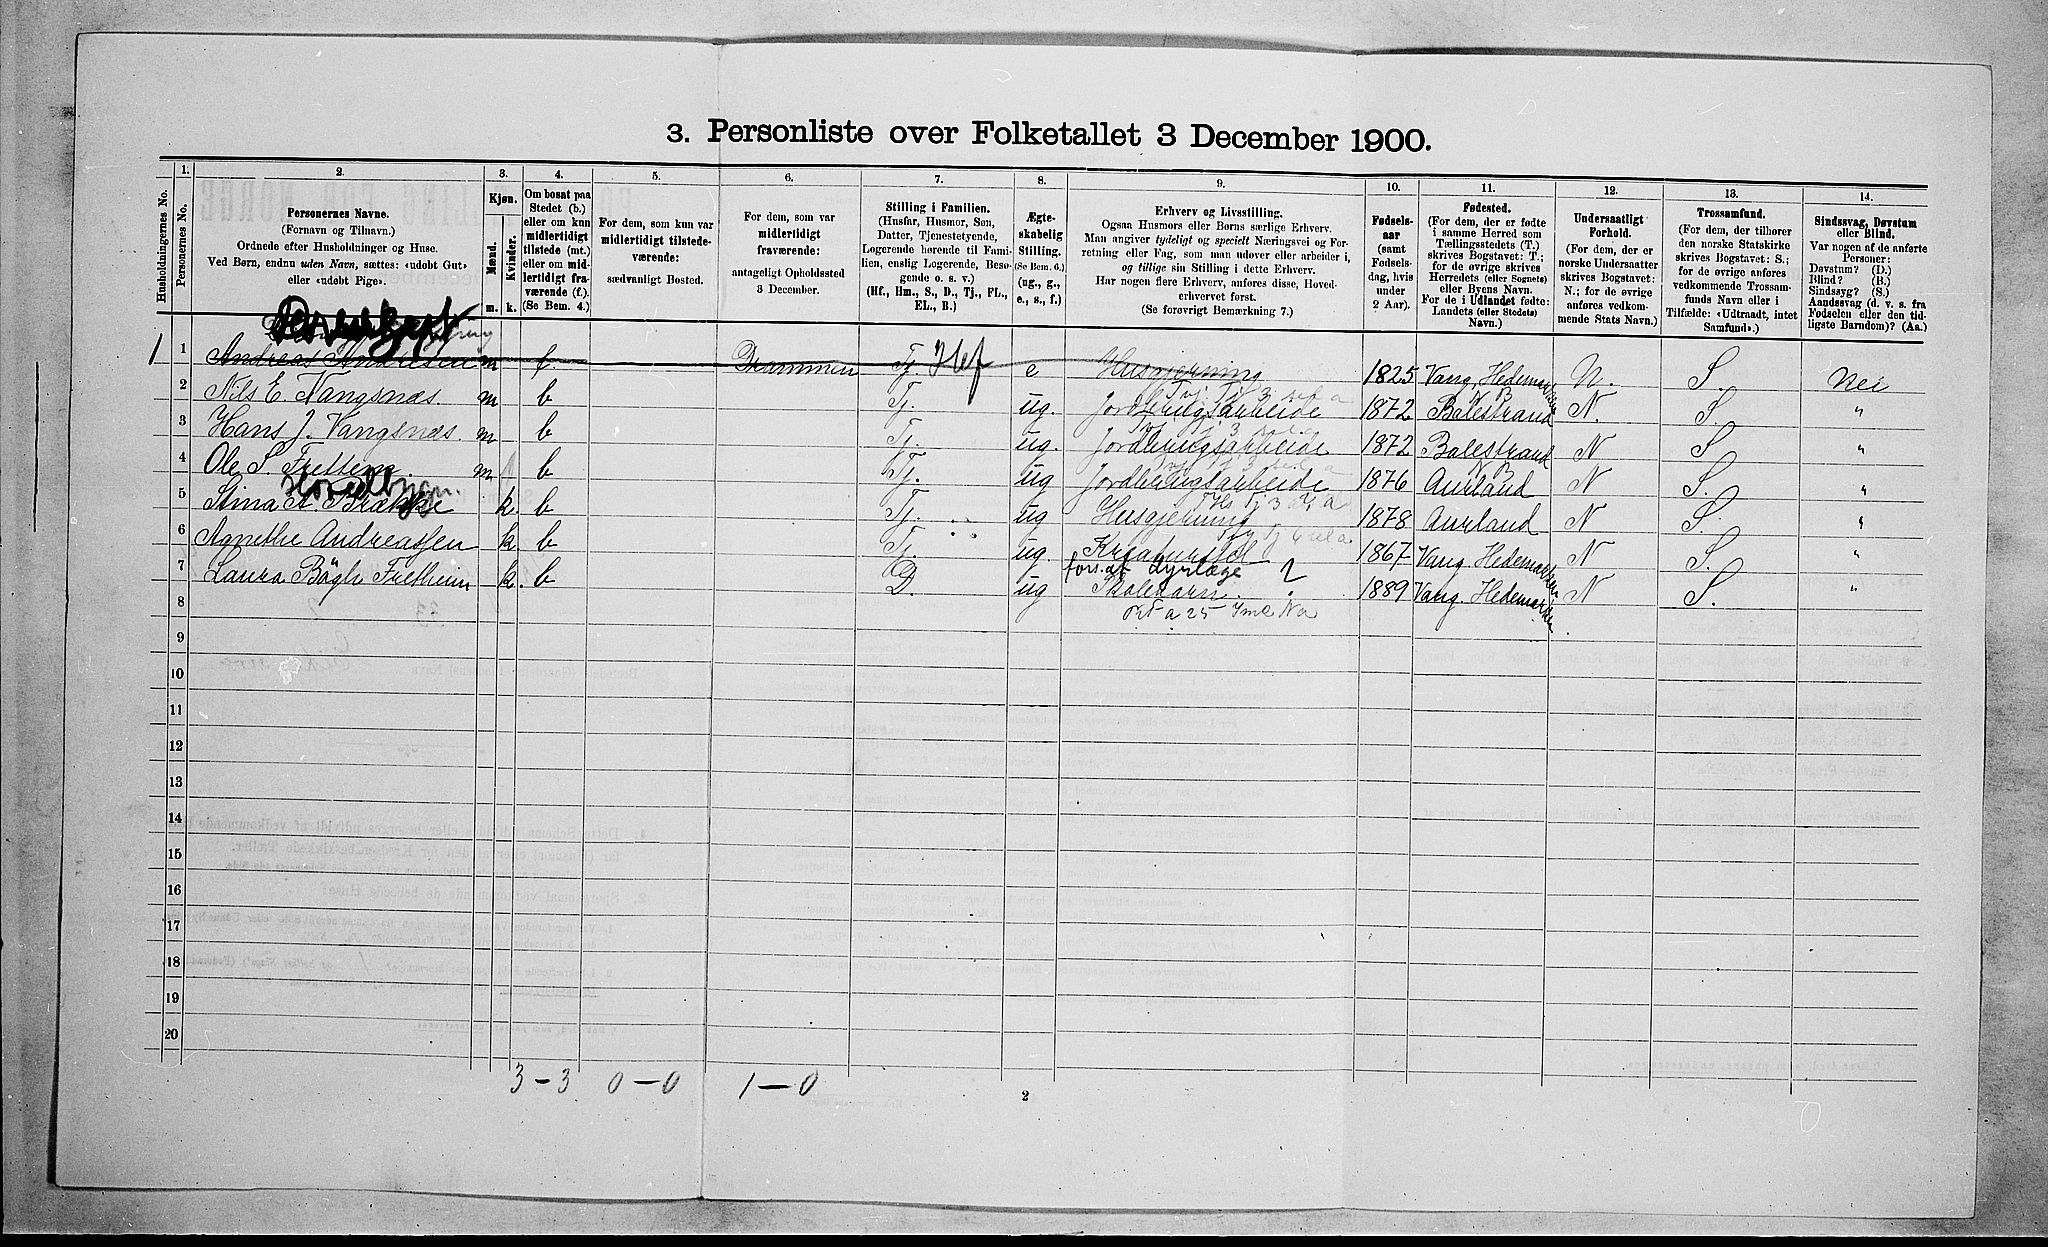 3. Personliste over Folketallet 3 December 1900.
Husholdningernes No.
1.
Personernes No.
2.
Personernes Navne.
(Fornavn og Tilnavn.)
Ordnede efter Husholdninger og Huse.
Ved Børn, endnu uden Navn, sættes: «udøbt Gut»
eller «udøbt Pige».
3.
Kjøn.
Mænd.
Kvinder.
m. k.
4.
Om bosat paa
Stedet (b.)
eller om kun
midlertidigt
tilstede (mt.)
eller om mid-
lertidigt fra-
værende (f.).
(Se Bem. 4.)
5.
For dem, som kun var
midlertidigt tilstede-
værende:
sædvanligt Bosted.
6.
For dem, som var
midlertidigt
fraværende:
antageligt Opholdssted
3 December.
7.
Stilling i Familien.
(Husfar, Husmor, Søn,
Datter, Tjenestetyende,
Logerende hørende til Fami-
lien, enslig Logerende, Besø-
gende o. s. v.)
(Hf., Hm., S., D., Tj., FL.,
EL., B.)
8.
Ægte-
skabelig
Stilling.
(Se Bem. 6.)
(ug., g.,
e., s., f.)
9.
Erhverv og Livsstilling.
Ogsaa Husmors eller Børns særlige Erhverv.
Man angiver tydeligt og specielt Næringsvei og For-
retning eller Fag, som man udøver eller arbeider i,
og tillige sin Stilling i dette Erhverv.
Har nogen flere Erhverv, anføres disse, Hoved-
erhvervet først.
(Se forøvrigt Bemærkning 7.)
10.
Fødsels-
aar
(samt
Fødsels-
dag, hvis
under
2 Aar).
11.
Fødested.
(For dem, der er fødte
i samme Herred som
Tællingsstedets (T.)
skrives Bogstavet: T.;
for de øvrige skrives
Herredets (eller Sognets)
eller Byens Navn.
For de i Udlandet fødte:
Landets (eller Stedets)
Navn.)
12.
Undersaatligt
Forhold.
(For dem, der er
norske Undersaatter
skrives Bogstavet:
N.; for de øvrige
anføres vedkom-
mende Stats Navn.)
13.
Trossamfund.
(For dem, der tilhører
den norske Statskirke
skrives Bogstavet: S.;
for de øvrige anføres
vedkommende Trossam-
funds Navn eller i
Tilfælde: «Udtraadt, intet
Samfund».)
14.
Sindssvag, Døvstum
eller Blind.
Var nogen af de anførte
Personer:
Døvstum? (D.)
Blind? (B.)
Sindssyg? (S.)
Aandssvag (d. v. s. fra
Fødselen eller den tid-
ligste Barndom)? (Aa.)
1 1 Andreas Andresen m f. Drammen Tj Hf e Husgjerning 1825 Vang, Hedemarken N. S. Nei
2 Nils E. Vangsnæs. m b Tj. ug. Jordbrugsarbeide 1872 Balestrand N. S. "
3 Hans J. Vangsnæs. m b Tj. ug. Jordbrugsarbeide 1872 Balestrand N S "
4 Ole S. Frettem. m b Tj. ug Jordbrugsarbeide 1876 Aurland N S. "
Hovedbygn.
5 Stina A Brække k b Tj. ug Husgjerning 1878 Aurland N S. "
6 Agnethe Andreassen k b Tj. ug. Kreaturstel 1867 Vang. Hedemarken N S. "
fors. af Dyrlæge
7 Laura Bögh Fretheim k. b D. ug Skolebarn. 1889 Vang. Hedemarken N S. "
8
9
10
11
12
13
14
15
16
17
18
19
20
3 – 3 0 – 0 1 – 0
2